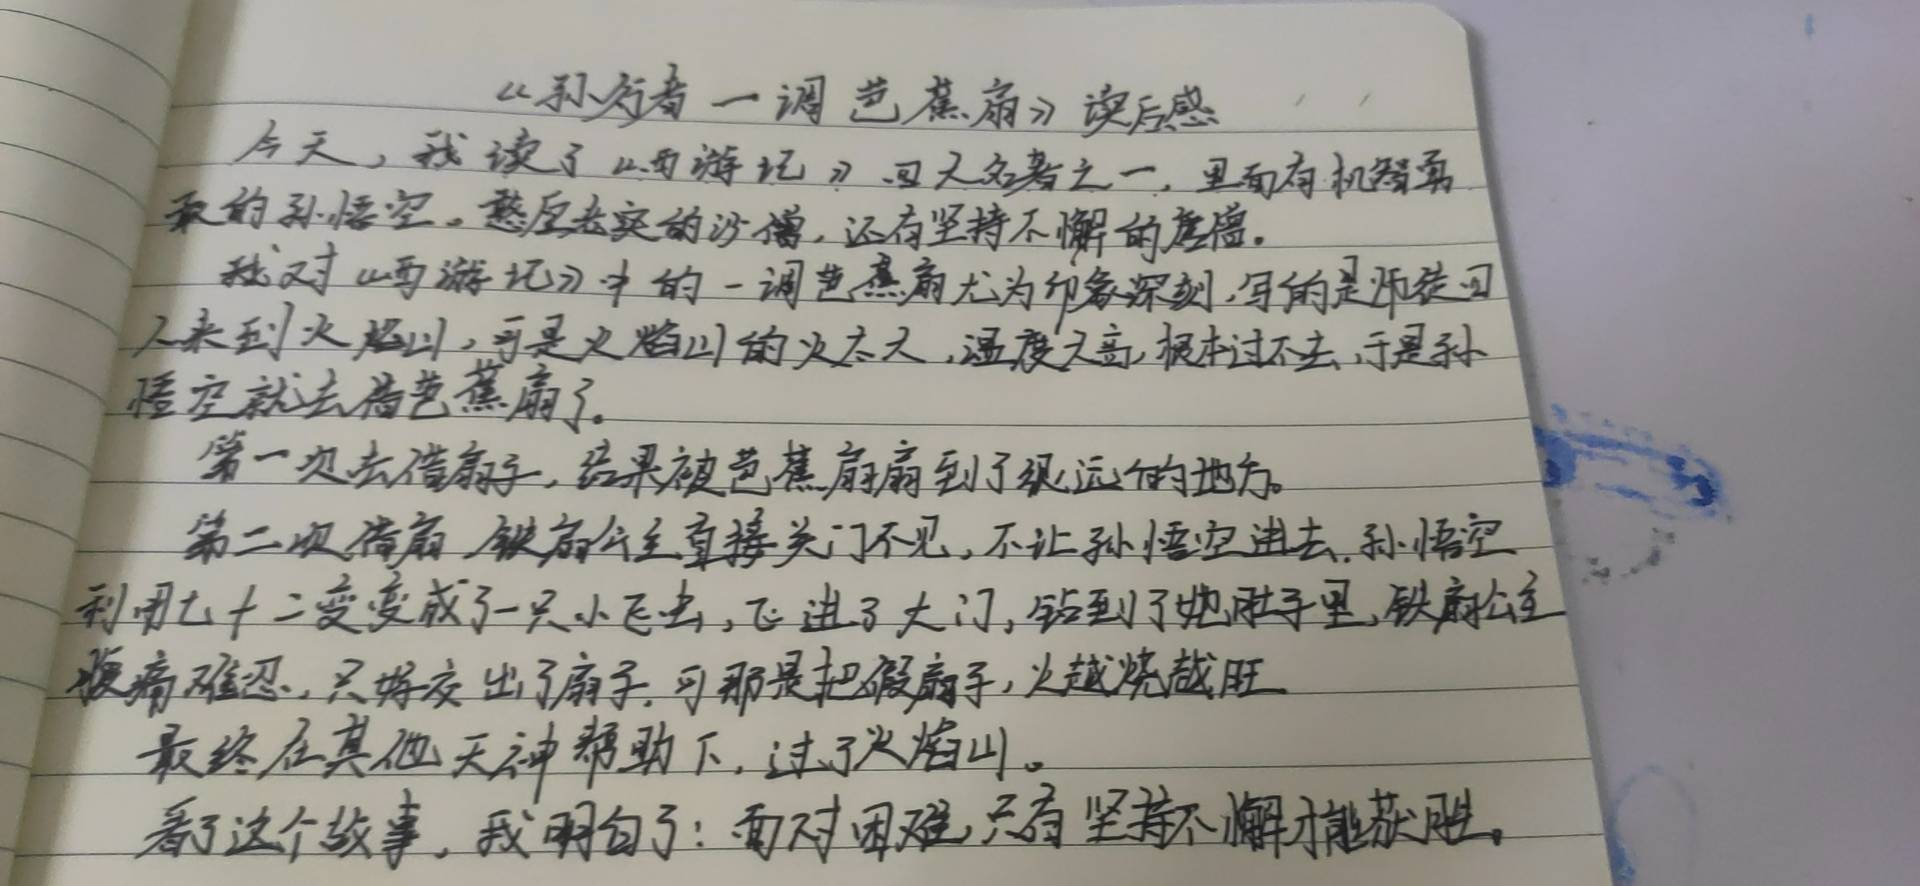 《孙行者一调芭蕉扇》读后感
今天，我读了《西游记》四大名著之一，里面有机智勇
敢的孙悟空。憨厚老实的沙僧，还有坚持不懈的唐僧。
我对《西游记》中的一调芭蕉扇尤为印象深刻，写的是师徒四
人来到火焰山，可是火焰山的火太大，温度太高，根本过不去，于是孙
悟空就去借芭蕉扇了。
第一次去借扇子，结果被芭蕉扇扇到了很远的地方。
第二次借扇，铁扇公主直接关门不见，不让孙悟空进去，孙悟空
利用七十二变变成了一只小飞虫，飞进了大门，钻到了她肚子里，铁扇公主
腹痛难忍，只好交出了扇子，可那是把假扇子，火越烧越旺
最终在其他天神帮助下，过了火焰山。
看了这个故事，我明白了：面对困难，只有坚持不懈才能获胜。